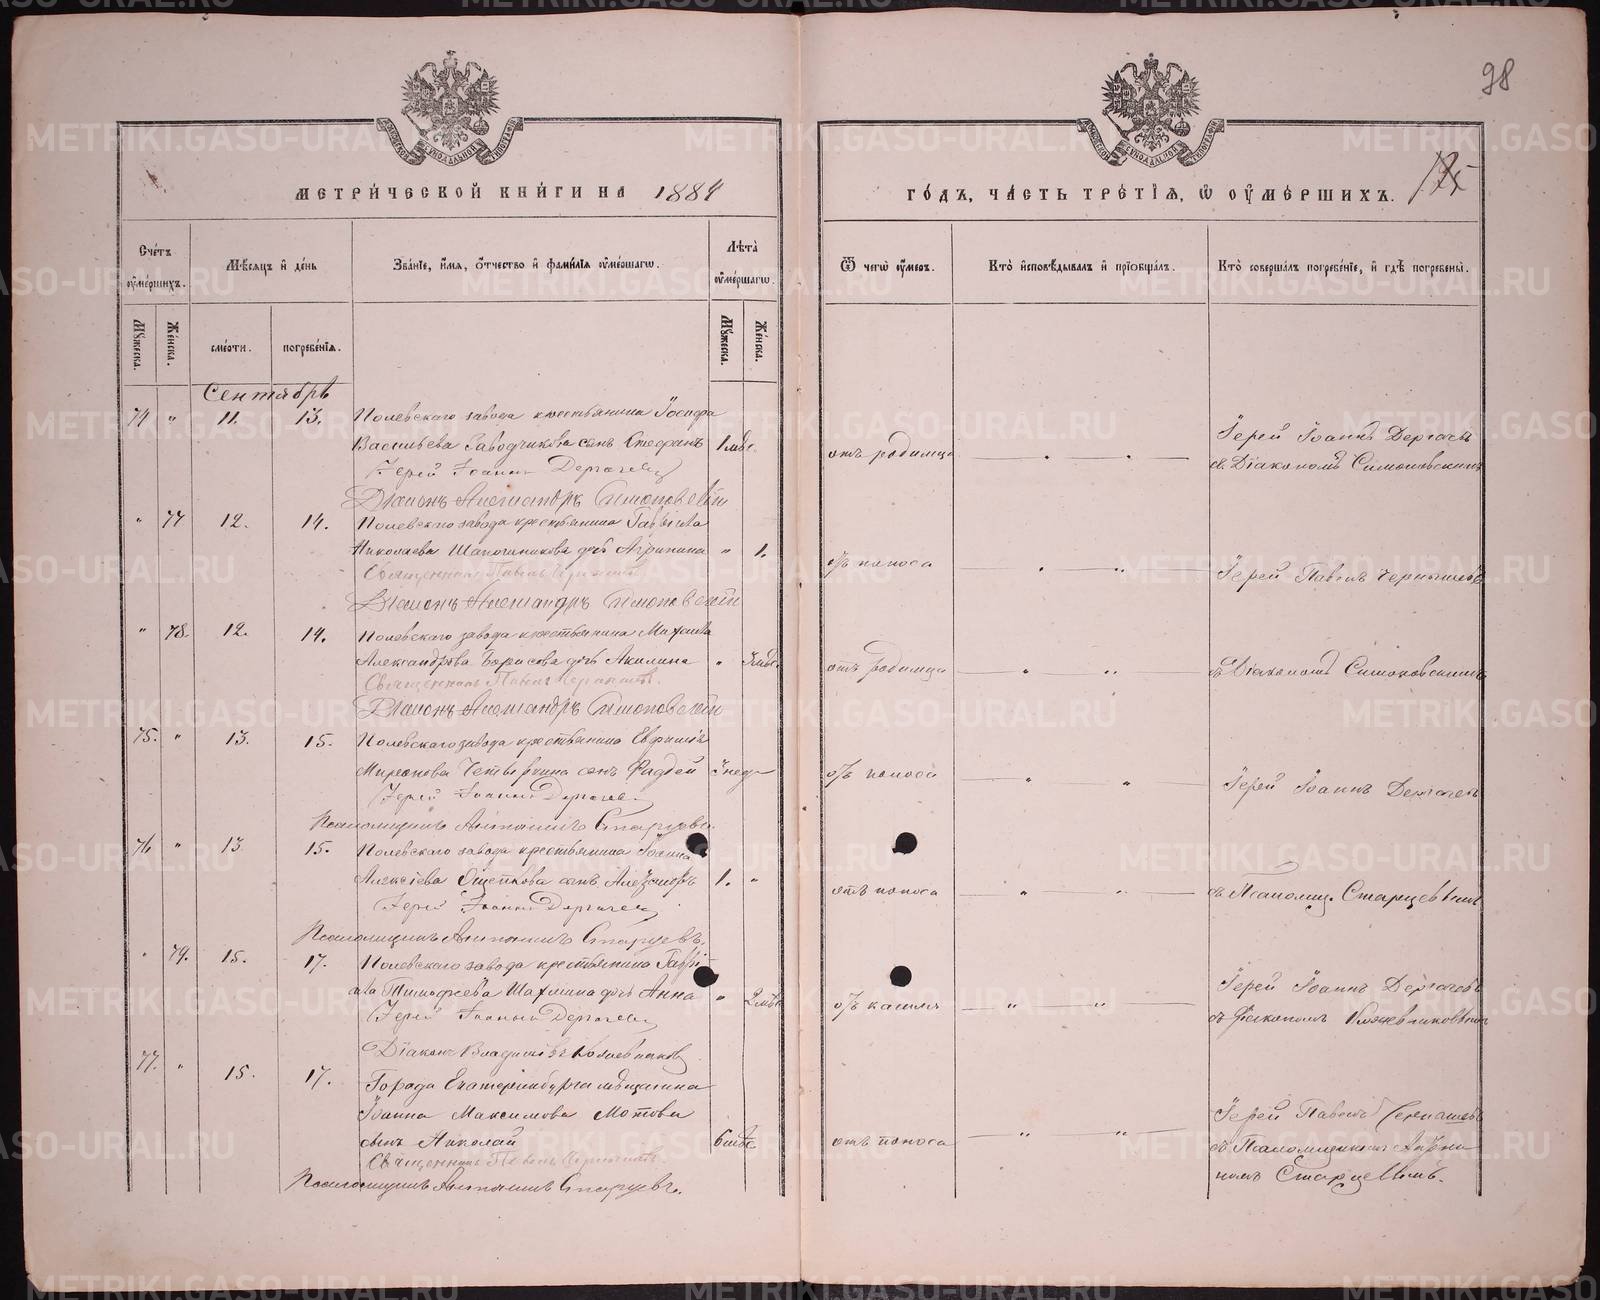 98
МЕТРИЧЕСКОЙ КНИГИ НА 1884
ГОДЪ, ЧАСТЬ ТРЕТІЯ, Ѿ ОУМЕРШИХЪ.
Счетъ оумершихъ.
Мѣсяцъ и день
Званіе, имя, отчество и фамилія оумершагѡ.
Лѣта оумершагѡ.
Ѿ чегѡ оумеръ.
Кто исповѣдывалъ и пріобщалъ.
Кто совершалъ погребеніе, и гдѣ погребены.
Мужеска.
Женска.
смерти.
погребенія.
Мужеска.
Женска.
Сентябрь
74 " 11. 13. Полевскаго завода крестьянина Іосифа
Васильева Заводчикова сынъ Стефанъ 1 мѣс. отъ родимца
Іерей Іоаннъ Дергачевъ
съ Діакономъ Симоновскимъ
Іерей Іоаннъ Дергачевъ
Діаконъ Александръ Симоновскій
" 77 12. 14. Полевскаго завода крестьянина Гавріила
Николаева Шапочникова дочь Агрипина " 1. отъ поноса
Іерей Павелъ Чернышевъ
Священникъ Павелъ
Діаконъ Александръ Симоновскій
" 78. 12. 14. Полевскаго завода крестьянина Михаила
Александрова Борисова дочь Акилина " 3 мѣс. отъ родимца
съ Діакономъ Симоновскимъ
Священникъ Павелъ
Діаконъ Александръ Симоновскій
75. " 13. 15. Полевскаго завода крестьянина Евфимія
Миронова сынъ Фаддей 3 нед. отъ поноса
Іерей Іоаннъ Дергачевъ
Іерей Іоаннъ Дергачевъ
Псаломщикъ Антонинъ Старцевъ.
76 " 13 15. Полевскаго завода крестьянина Іоанна
Алексіева Ощепкова сынъ Александръ 1. " отъ поноса
съ Псаломщ. Старцевымъ
Іерей Іоаннъ Дергачевъ
Псаломщикъ Антонинъ Старцевъ.
" 79. 15. 17. Полевскаго завода крестьянина Гаврі-
ила Тимофеева Шахмина дочь Анна " 2 мѣс. отъ кашля
Іерей Іоаннъ Дергачевъ
съ Діакономъ Кожевниковымъ
Іерей Іоаннъ Дергачевъ
Діаконъ Владиміръ Кожевниковъ
77. " 15. 17. Города Екатеринбурга мѣщанина
Іоанна Максимова Мотова
сынъ Николай 6 мѣс. отъ поноса
Іерей Павелъ Чернышевъ
съ Псаломщикомъ Антони-
номъ Старцевымъ.
Священникъ Павелъ
Псаломщикъ Антонинъ Старцевъ.
METRIKI.GASO-URAL.RU